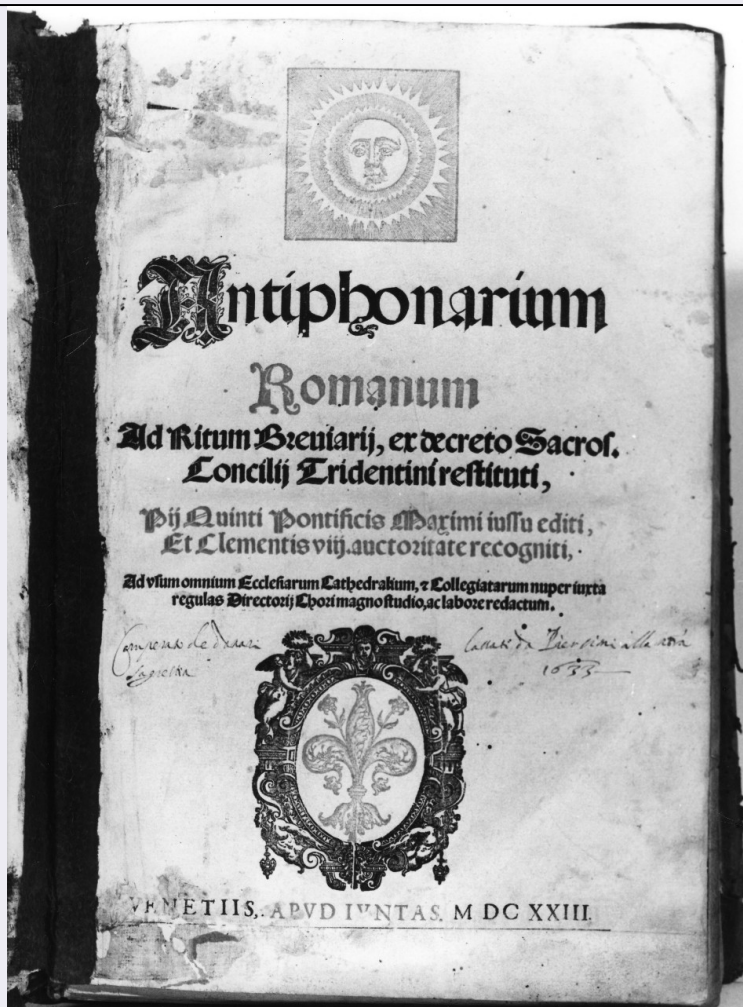 Antiphonarium
Romanum
Ad Ritum Breuiarij, ex decreto Sacros.
Concilij Tridentini restituti,
Pij Quinti Pontificis Maximi iussu editi,
Et Clementis viij. auctoritate recogniti,
Ad vsum omnium Ecclesiarum Cathedralium, ⁊ Collegiatarum nuper iuxta
regulas Directorij Chori magno studio, ac labore redactum.
de danari
da
1633
VENETIIS, APVD IVNTAS. M DC XXIII.